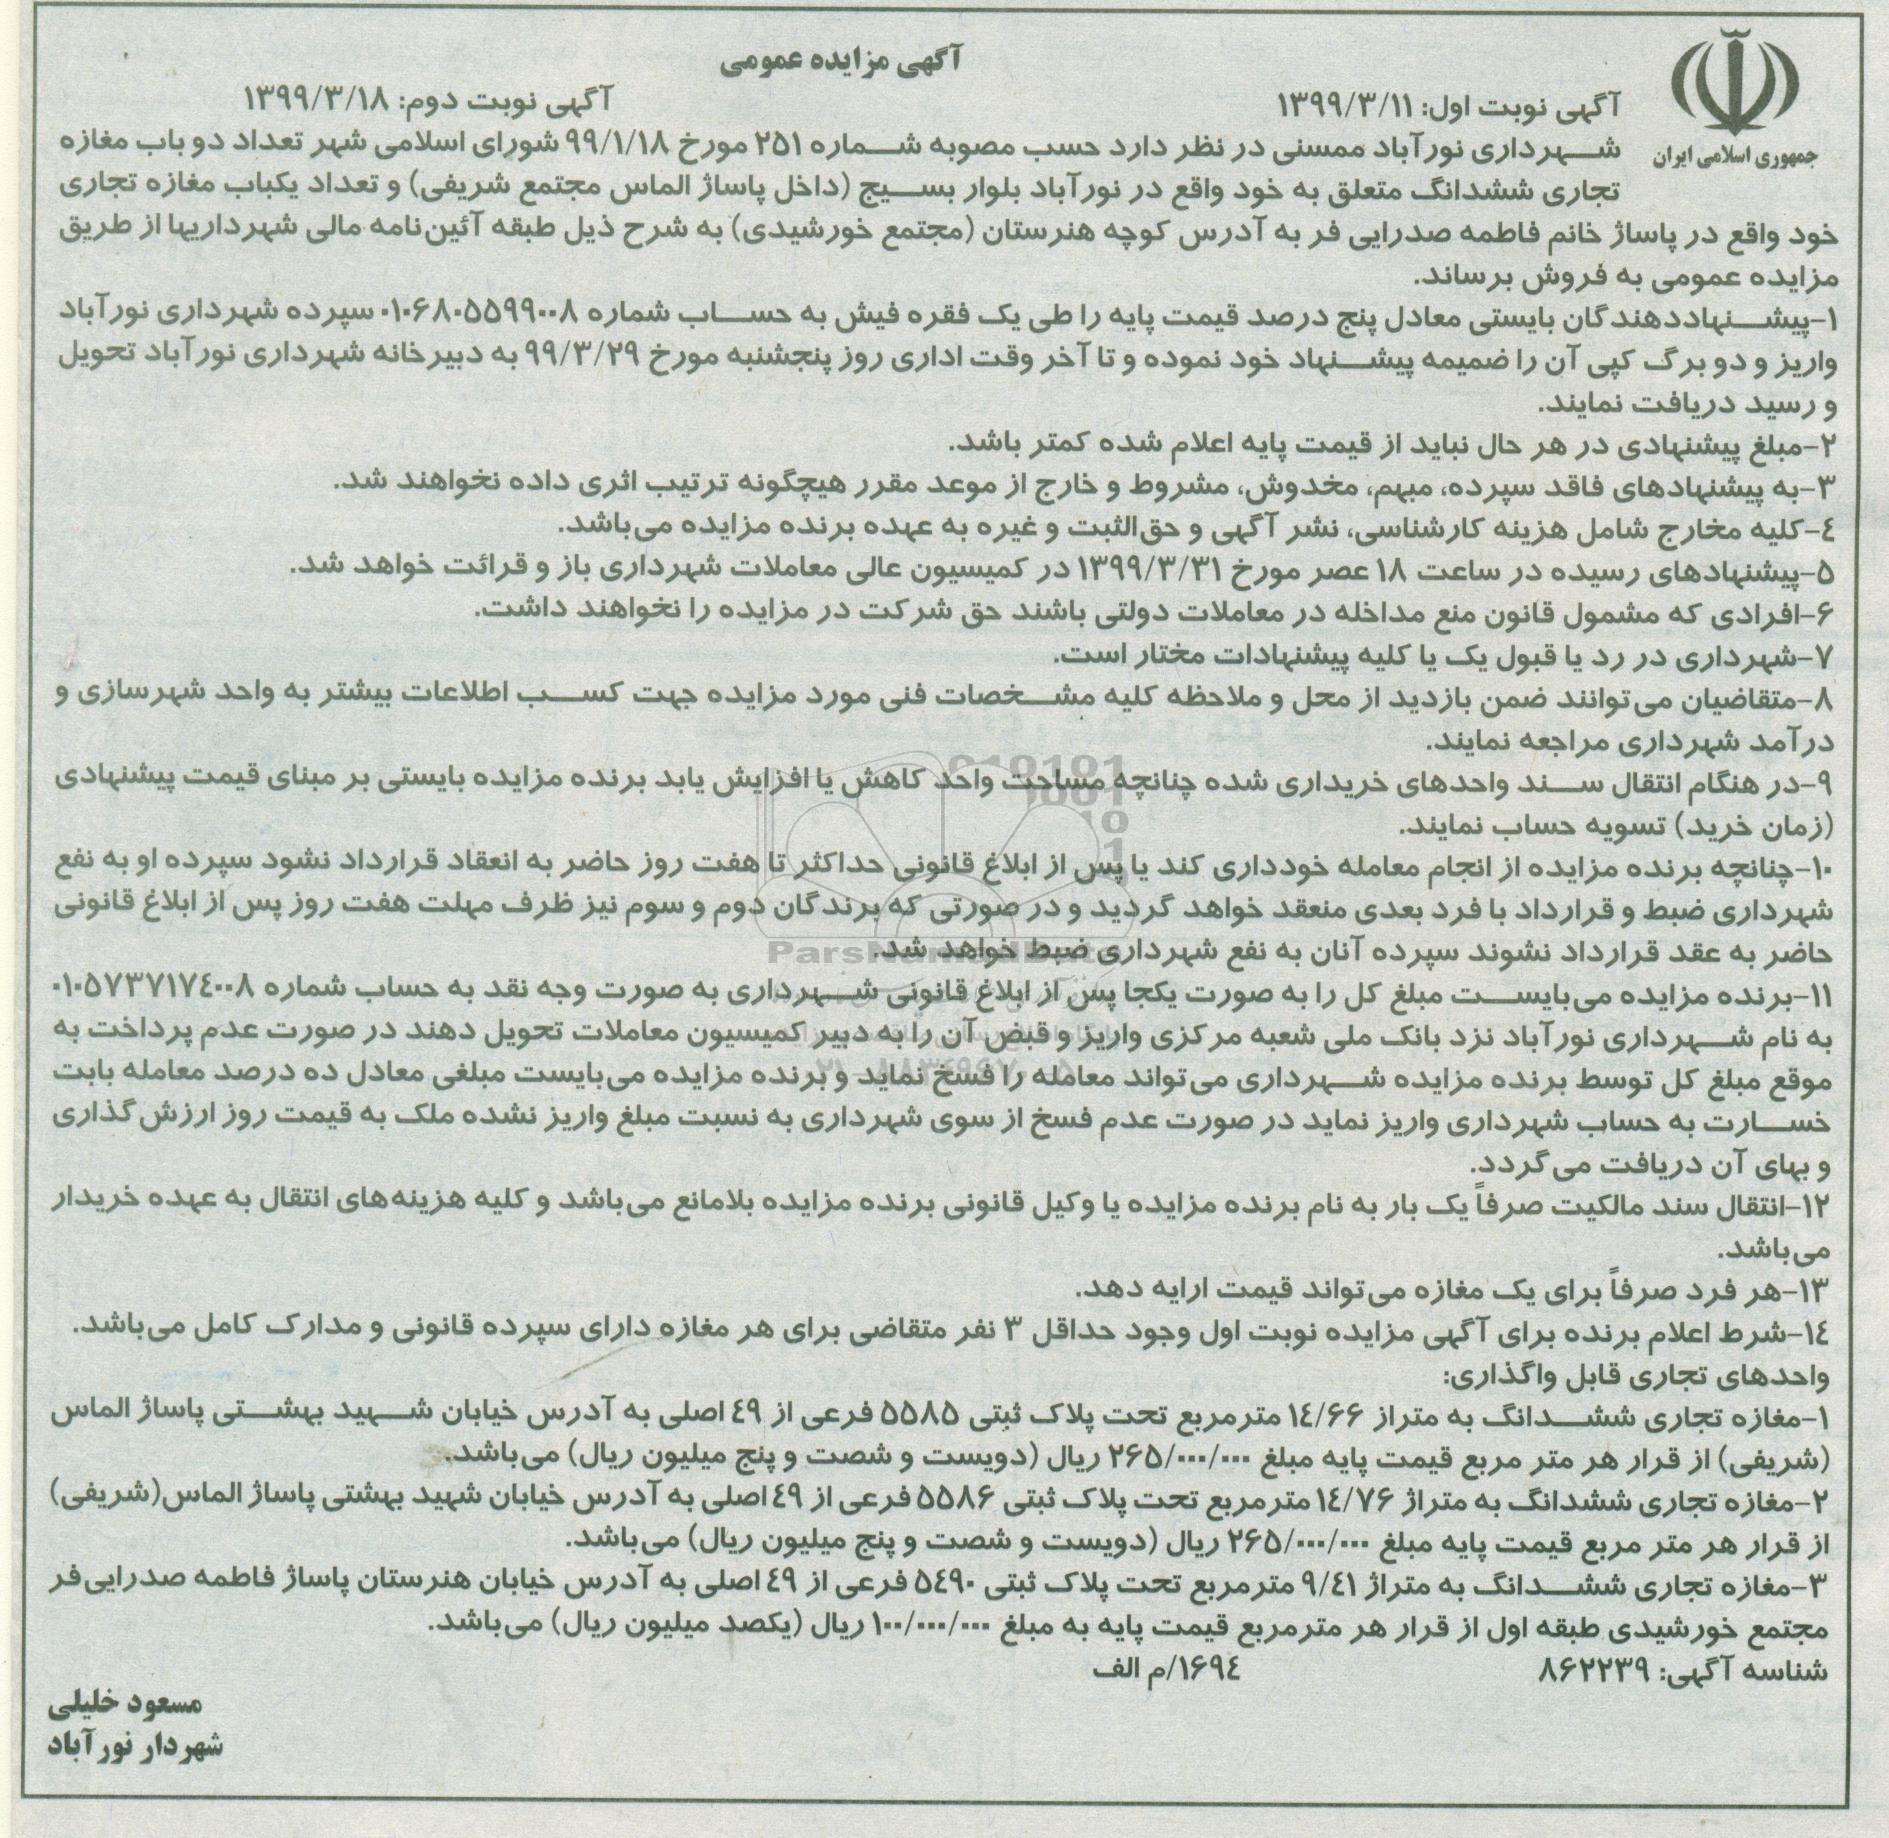 آگهی مزایده عمومی
آگهی نوبت اول: ۱۳۹۹/۳/۱۱
آگهی نوبت دوم: ۱۳۹۹/۳/۱۸
جمهوری اسلامی ایران
شهرداری نورآباد ممسنی در نظر دارد حسب مصوبه شماره ۲۵۱ مورخ ۹۹/۱/۱۸ شورای اسلامی شهر تعداد دو باب مغازه
تجاری ششدانگ متعلق به خود واقع در نورآباد بلوار بسیج (داخل پاساژ الماس مجتمع شریفی) و تعداد یکباب مغازه تجاری
خود واقع در پاساژ خانم فاطمه صدرایی فر به آدرس کوچه هنرستان (مجتمع خورشیدی) به شرح ذیل طبقه آئین‌نامه مالی شهرداریها از طریق
مزایده عمومی به فروش برساند.
۱-پیشنهاددهندگان بایستی معادل پنج درصد قیمت پایه را طی یک فقره فیش به حساب شماره ۰۱۰۶۸۰۵۵۹۹۰۰۸ سپرده شهرداری نورآباد
واریز و دو برگ کپی آن را ضمیمه پیشنهاد خود نموده و تا آخر وقت اداری روز پنجشنبه مورخ ۹۹/۳/۲۹ به دبیرخانه شهرداری نورآباد تحویل
و رسید دریافت نمایند.
۲-مبلغ پیشنهادی در هر حال نباید از قیمت پایه اعلام شده کمتر باشد.
۳-به پیشنهادهای فاقد سپرده، مبهم، مخدوش، مشروط و خارج از موعد مقرر هیچگونه ترتیب اثری داده نخواهند شد.
۴-کلیه مخارج شامل هزینه کارشناسی، نشر آگهی و حق‌الثبت و غیره به عهده برنده مزایده می‌باشد.
۵-پیشنهادهای رسیده در ساعت ۱۸ عصر مورخ ۱۳۹۹/۳/۳۱ در کمیسیون عالی معاملات شهرداری باز و قرائت خواهد شد.
۶-افرادی که مشمول قانون منع مداخله در معاملات دولتی باشند حق شرکت در مزایده را نخواهند داشت.
۷-شهرداری در رد یا قبول یک یا کلیه پیشنهادات مختار است.
۸-متقاضیان می‌توانند ضمن بازدید از محل و ملاحظه کلیه مشخصات فنی مورد مزایده جهت کسب اطلاعات بیشتر به واحد شهرسازی و
درآمد شهرداری مراجعه نمایند.
۹-در هنگام انتقال سند واحدهای خریداری شده چنانچه مساحت واحد کاهش یا افزایش یابد برنده مزایده بایستی بر مبنای قیمت پیشنهادی
(زمان خرید) تسویه حساب نمایند.
۱۰-چنانچه برنده مزایده از انجام معامله خودداری کند یا پس از ابلاغ قانونی حداکثر تا هفت روز حاضر به انعقاد قرارداد نشود سپرده او به نفع
شهرداری ضبط و قرارداد با فرد بعدی منعقد خواهد گردید و در صورتی که برندگان دوم و سوم نیز ظرف مهلت هفت روز پس از ابلاغ قانونی
حاضر به عقد قرارداد نشوند سپرده آنان به نفع شهرداری ضبط خواهد شد.
۱۱-برنده مزایده می‌بایست مبلغ کل را به صورت یکجا پس از ابلاغ قانونی شهرداری به صورت وجه نقد به حساب شماره ۰۱۰۵۷۳۷۱۷۴۰۰۸
به نام شهرداری نورآباد نزد بانک ملی شعبه مرکزی واریز و قبض آن را به دبیر کمیسیون معاملات تحویل دهند در صورت عدم پرداخت به
موقع مبلغ کل توسط برنده مزایده شهرداری می‌تواند معامله را فسخ نماید و برنده مزایده می‌بایست مبلغی معادل ده درصد معامله بابت
خسارت به حساب شهرداری واریز نماید در صورت عدم فسخ از سوی شهرداری به نسبت مبلغ واریز نشده ملک به قیمت روز ارزش‌گذاری
و بهای آن دریافت می‌گردد.
۱۲-انتقال سند مالکیت صرفاً یک بار به نام برنده مزایده یا وکیل قانونی برنده مزایده بلامانع می‌باشد و کلیه هزینه‌های انتقال به عهده خریدار
می‌باشد.
۱۳-هر فرد صرفاً برای یک مغازه می‌تواند قیمت ارایه دهد.
۱۴-شرط اعلام برنده برای آگهی مزایده نوبت اول وجود حداقل ۳ نفر متقاضی برای هر مغازه دارای سپرده قانونی و مدارک کامل می‌باشد.
واحدهای تجاری قابل واگذاری:
۱-مغازه تجاری ششدانگ به متراژ ۱۴/۶۶ مترمربع تحت پلاک ثبتی ۵۵۸۵ فرعی از ۴۹ اصلی به آدرس خیابان شهید بهشتی پاساژ الماس
(شریفی) از قرار هر متر مربع قیمت پایه مبلغ ۲۶۵/۰۰۰/۰۰۰ ریال (دویست و شصت و پنج میلیون ریال) می‌باشد.
۲-مغازه تجاری ششدانگ به متراژ ۱۴/۷۶ مترمربع تحت پلاک ثبتی ۵۵۸۶ فرعی از ۴۹ اصلی به آدرس خیابان شهید بهشتی پاساژ الماس(شریفی)
از قرار هر متر مربع قیمت پایه مبلغ ۲۶۵/۰۰۰/۰۰۰ ریال (دویست و شصت و پنج میلیون ریال) می‌باشد.
۳-مغازه تجاری ششدانگ به متراژ ۹/۴۱ مترمربع تحت پلاک ثبتی ۵۴۹۰ فرعی از ۴۹ اصلی به آدرس خیابان هنرستان پاساژ فاطمه صدرایی‌فر
مجتمع خورشیدی طبقه اول از قرار هر مترمربع قیمت پایه به مبلغ ۱۰۰/۰۰۰/۰۰۰ ریال (یکصد میلیون ریال) می‌باشد.
شناسه آگهی: ۸۶۲۲۳۹
۱۶۹۴/م الف
مسعود خلیلی
شهردار نورآباد